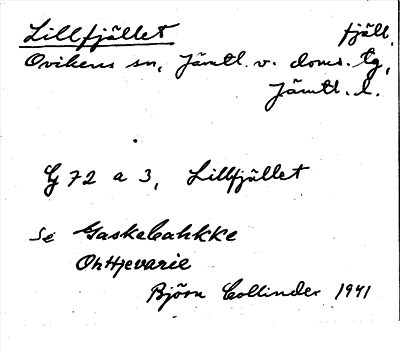 Lillfjället fjäll.
Ovikens sn, Jämtl. v. doms. tg,
Jämtl. l.
G 72 a 3, Lillfjället
Se Gaskebahkke
Ohttjevarie
Björn Collinder 1941